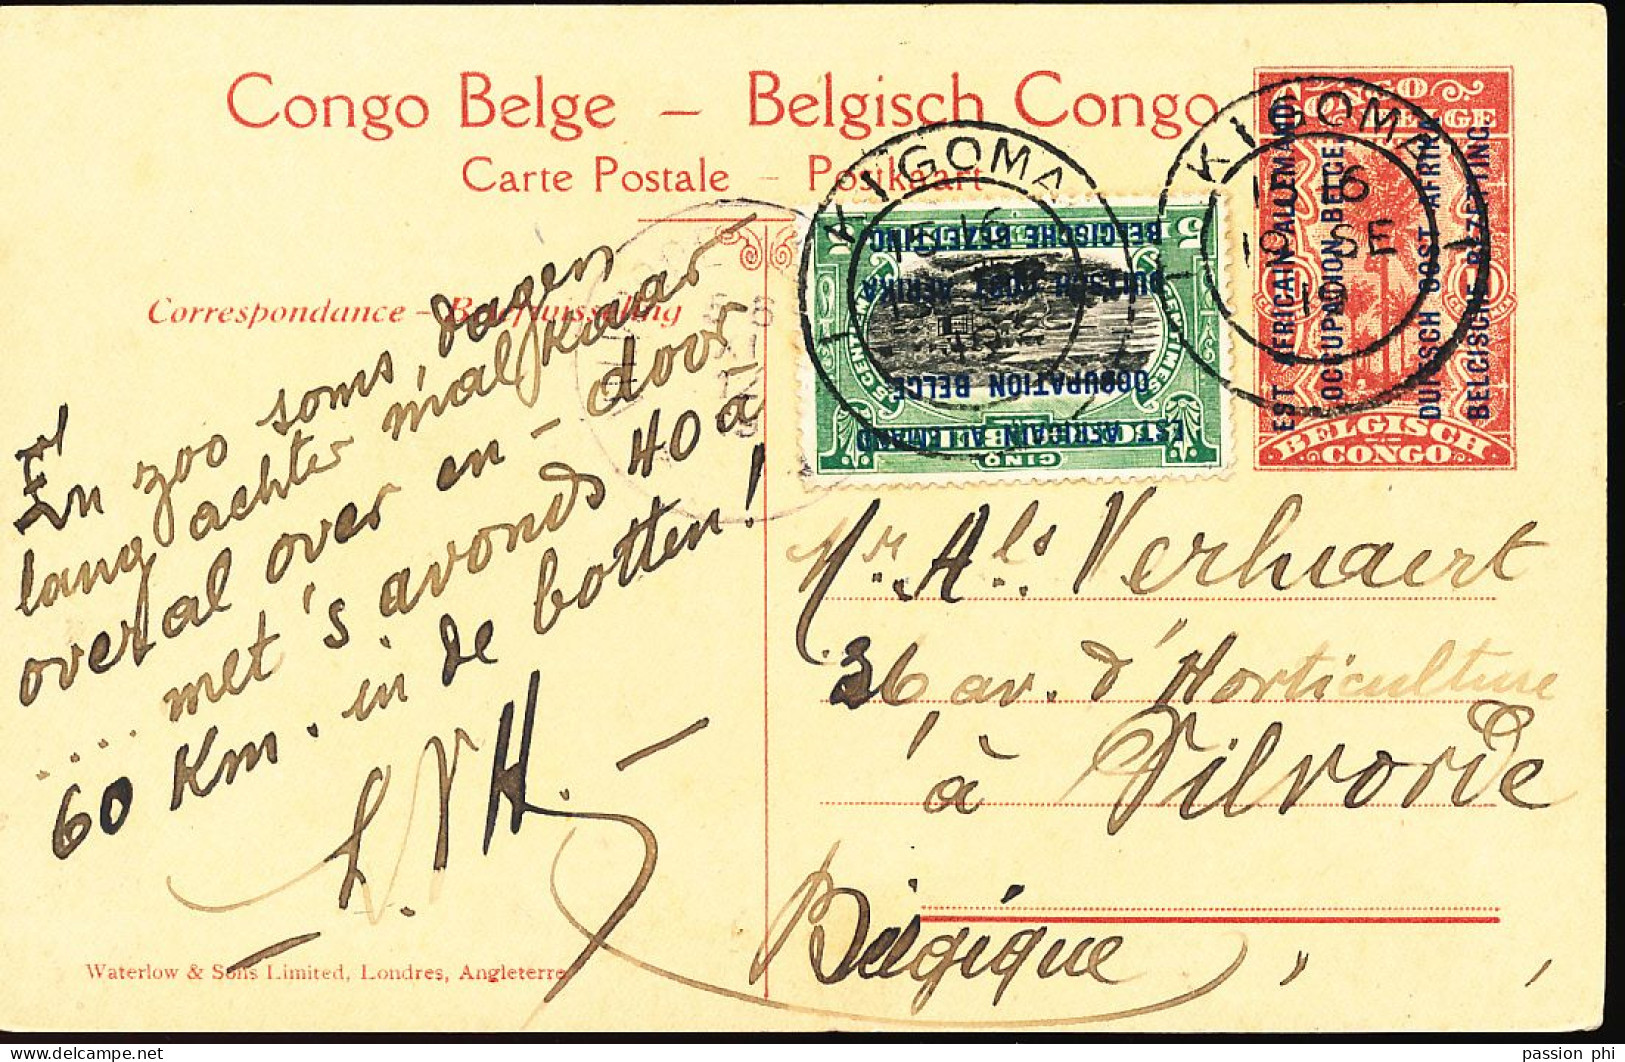 Congo Belge – Belgisch Congo
Carte Postale – Postkaart
Correspondance – Briefwisseling
En zoo soms, dagen
lang achter malkaar
overal over en – door
.... met 's avonds 40 à
60 Km. in de botten!
L.VH. –
Waterlow & Sons Limited, Londres, Angleterre
KIGOMA
15-16
19
5 5
EST AFRICAIN ALLEMAND
OCCUPATION BELGE
DUITSCH OOST AFRIKA
BELGISCHE BEZETTING
CINQ
KIGOMA
15-16
10 SE
19
CONGO
BELGE
EST AFRICAIN ALLEMAND.
OCCUPATION BELGE.
DUITSCH OOST AFRIKA
BELGISCHE BEZETTING.
BELGISCH
CONGO
Mr. Als Verhaert
36 av. d'Horticulture
à Vilvorde
Belgique,
passion phi